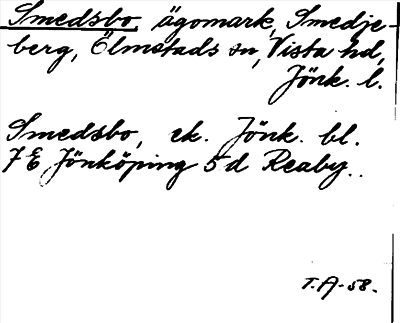 Smedsbo, ägomark, Smedje-
berg, Ölmstads sn, Vista hd,
Jönk. l.
Smedsbo, ek. Jönk. bl.
7 E Jönköping 5 d Reaby.
T.A-58.